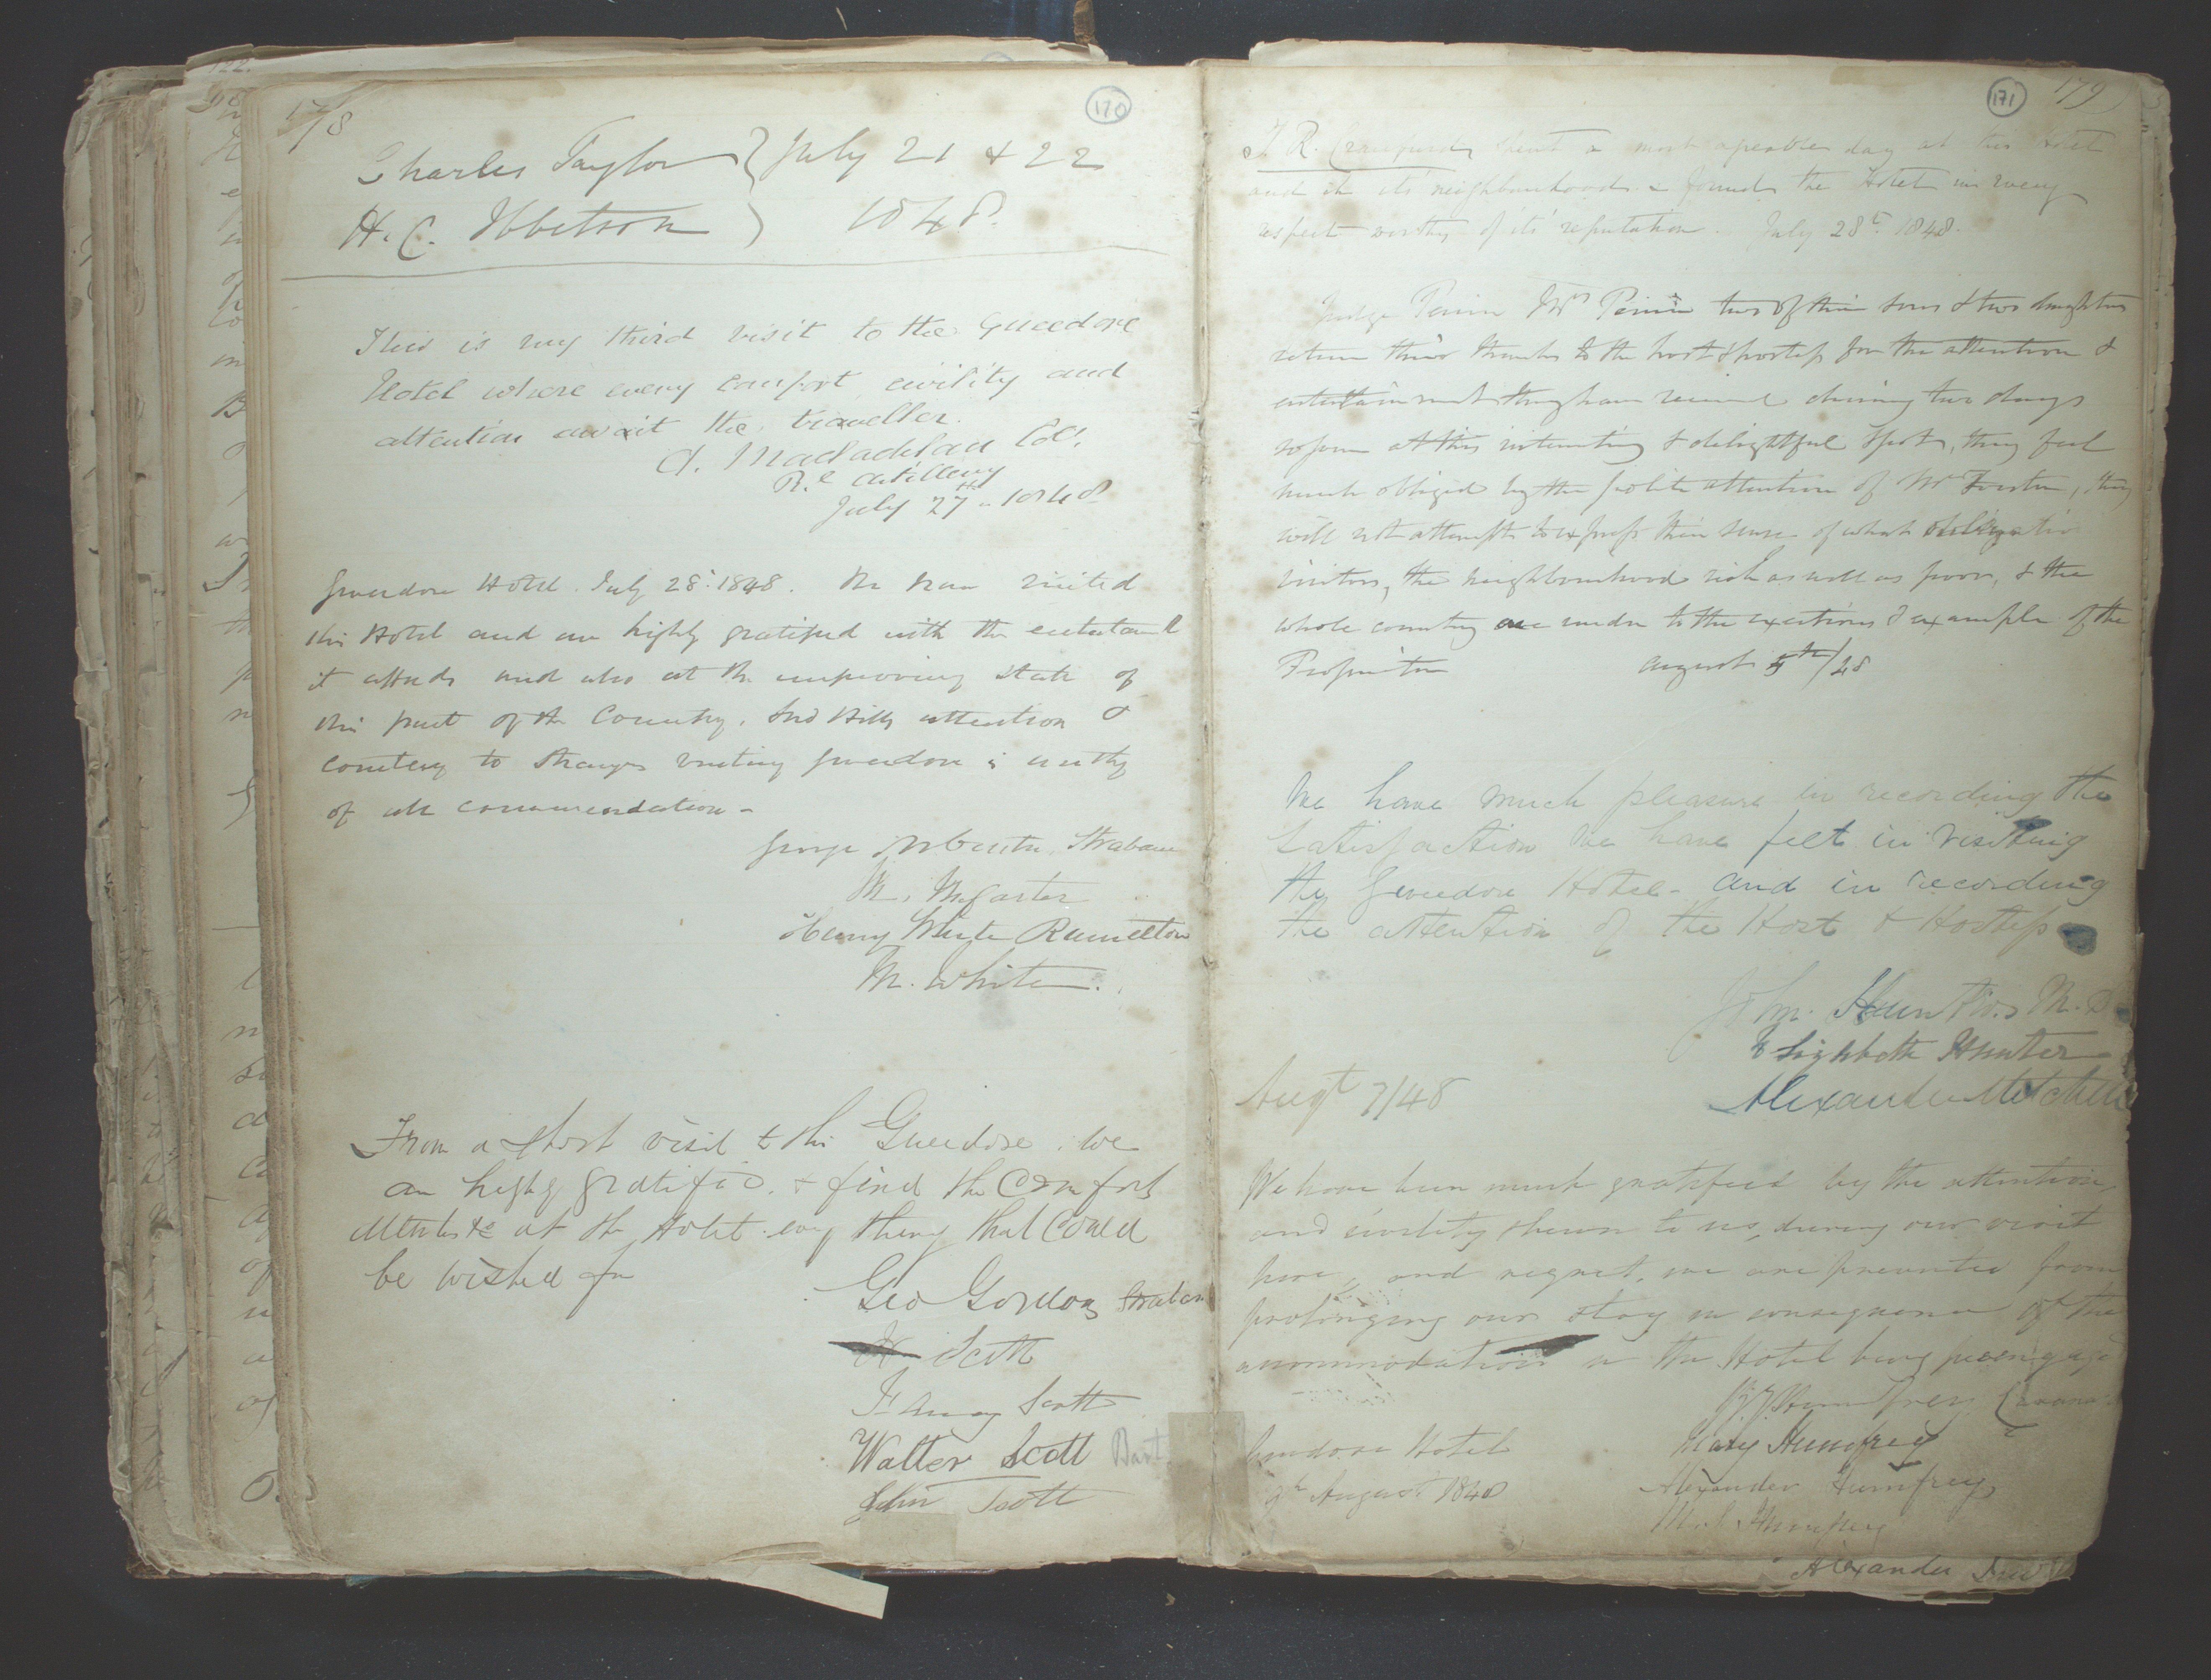 178
170
Charles Taylor } July 21 & 22
H. C. Ibbetson } 1848.
This is my third visit to the Gweedore
Hotel where every comfort civility and
attention await the traveller.
Col.
Rl Artillery
July 27th 1848
Gweedore Hotel. July 28: 1848. We have visited
this Hotel and are highly gratified with the
it affords and also at the improving state of
this part of the Country. attention &
courtesy to strangers visiting Gweedore is worthy
of all commendation -
George Strabane
M. McCarter
Henry White Ramelton
M. White.
From a short visit to this Gweedore we
are highly gratified. & find the Comfort
at the Hotel every thing that Could
be wished for
Geo Gordon Straban
Scott
Fanny Scott
Walter Scott Bart
John Scott
171
179
T. R. Craufurd spent a most agreeable day at this Hotel
and in its' neighbourhood & found the Hotel in every
respect worthy of its' reputation. July 28th. 1848.
Judge Perrin Mrs Perrin two of their sons & two daughters
return their thanks to the host & hostess for the attention &
entertainment they have received during two days
sojourn at this interesting & delightful spot, they feel
much obliged by the polite attention of Mr Forster, they
will not attempt to express their sense of what obligation
visitors, the neighbourhood rich as well as poor, & the
whole country are under to the exertions & example of the
Proprietor August 5th/48
We have much pleasure in recording the
Satisfaction we have felt in visiting
the Gweedore Hotel - and in recording
the attention of the Host & Hostess
John Hunter M.D
Elizabeth Hunter
Augt 7/48
Alexander Mitchell
We have been much gratified by the attention
and civility shewn to us, during our visit
here, and regret, we are prevented from
prolonging our stay in consequence of the
accommodation in the Hotel being preengaged
Humfrey
Mary Humfrey
Gweedore Hotel
Alexander Humfrey
9th August 1848
Humfrey
Alexander